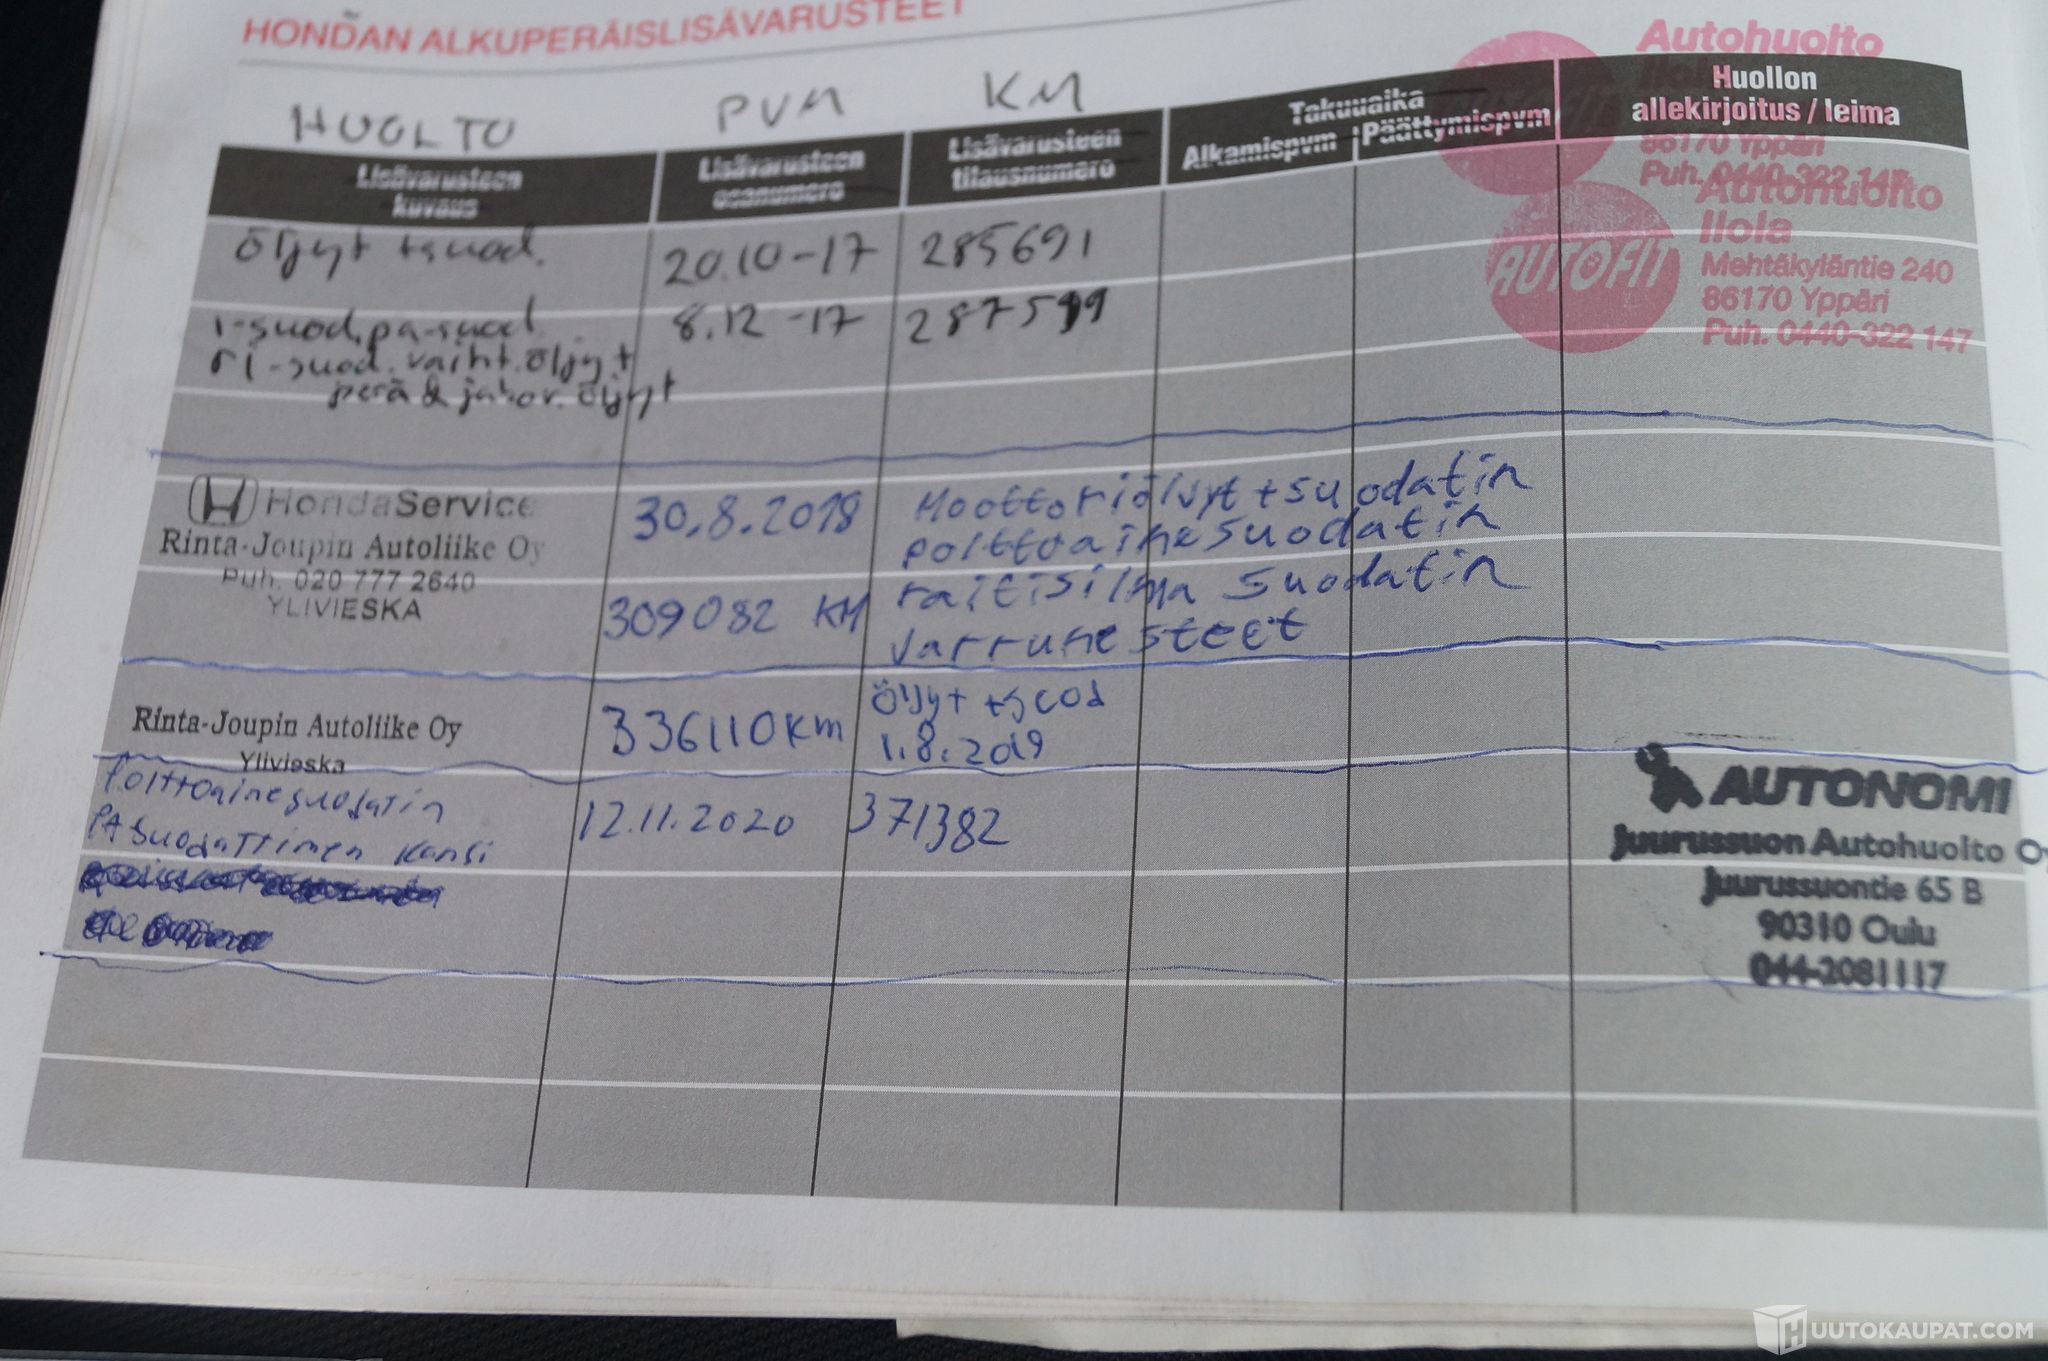 HONDAN ALKUPERÄISLISÄVARUSTEET
HUOLTO PVM KM
Lisävarusteen kuvaus
Lisävarusteen osanumero
Lisävarusteen tilausnumero
Takuuaika
Alkamispvm Päättymispvm
Huollon
allekirjoitus / leima
Autohuolto
86170 Yppäri
Puh. 0440-322 147
öljyt + suod. 20.10-17 285691
Autohuolto
Ilola
AUTOFIT
Mehtäkyläntie 240
86170 Yppäri
Puh. 0440-322 147
i-suod, pa-suod. 8.12-17
ri-suod. vaiht. öljyt
perä & jakov. öljyt
HondaService
Rinta-Joupin Autoliike Oy
Puh. 020 777 2640
YLIVIESKA
30.8.2018
309082 KM
Moottoriöljyt + suodatin
polttoainesuodatin
raitisilma suodatin
varrunesteet
Rinta-Joupin Autoliike Oy
Ylivieska
336110 km
öljyt + suod
1.8.2019
Polttoainesuodatin
PA suodattimen kansi
12.11.2020 371382
AUTONOMI
Juurussuon Autohuolto Oy
Juurussuontie 65 B
90310 Oulu
044-2081117
HUUTOKAUPAT.COM